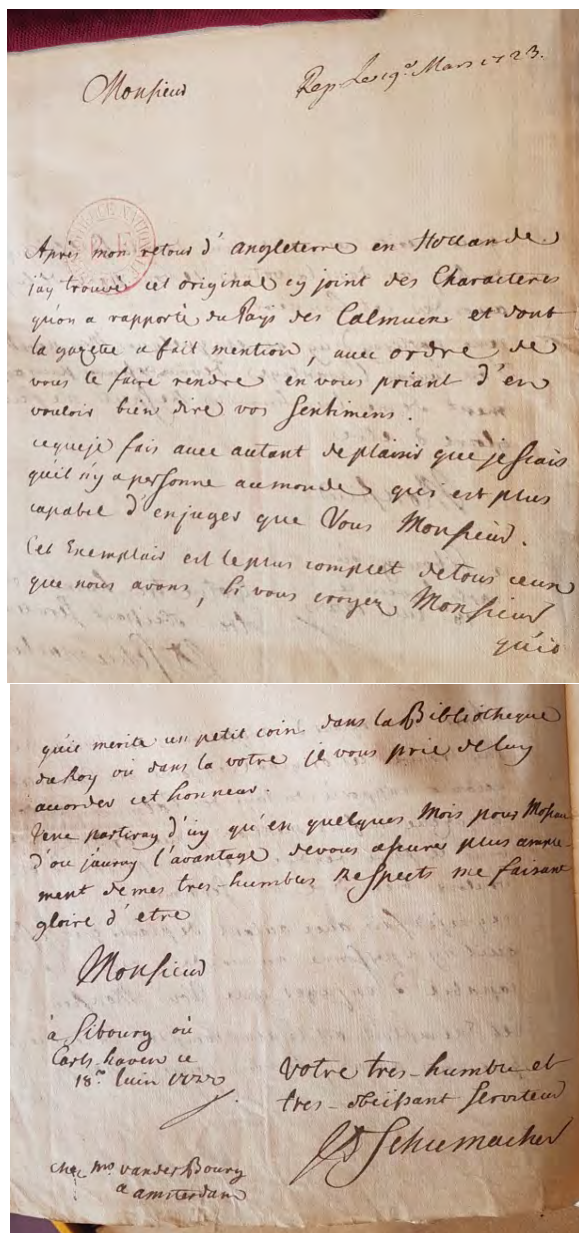 Monsieur
Rep. le 19e Mars 1723.
Après mon retour d'angleterre en Hollande
j'ay trouvé cet original cy joint des Characteres
qu'on a rapporté du Pays des Calmucns et dont
la gazette a fait mention, avec ordre de
vous le faire rendre en vous priant d'en
vouloir bien dire vos sentimens.
ceque je fais avec autant de plaisir que je scais
quil n'y a personne au monde qui est plus
capabel d'enjuger que Vous Monsieur.
Cet Exemplair est le plus complet de tous ceux
que nous avons, si vous croyez Monsieur
qu'il
qu'il merite un petit coin dans la Bibliotheque
du Roy ou dans la votre je vous prie de luy
accorder cet honneur.
Je ne partiray d'icy qu'en quelques Mois pour Moscau
d'ou j'auray l'avantage de vous assurer plus ample-
ment de mes tres-humbles Respects me faisant
gloire d'etre
Monsieur
à Sibourg ou
Carlshaven ce
18.me Juin 1722
Votre tres-humble et
tres-obeissant Serviteur
JD Schumacher
chez Mr. vander Bourg
a amsterdam